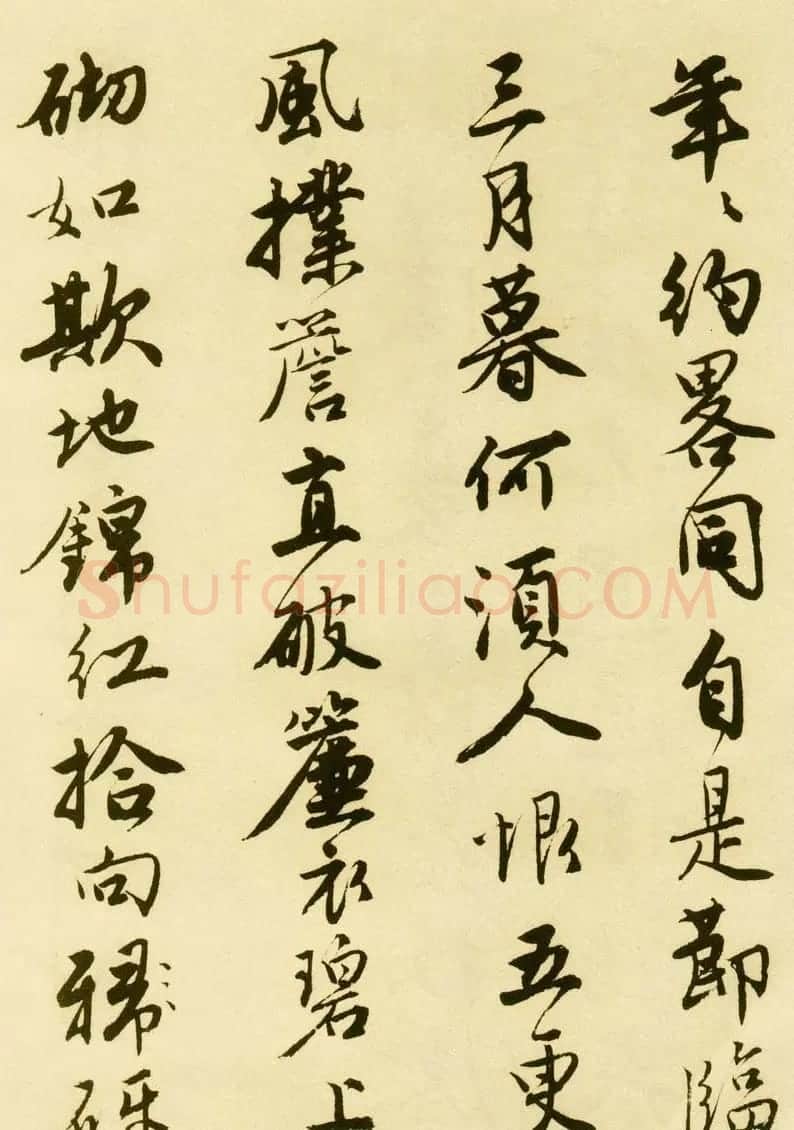 年〻約略同自是節臨
三月暮何須人恨五更
風撲簷直破簾衣碧上
砌如欺地錦紅拾向砑
Shufaziliao.COM